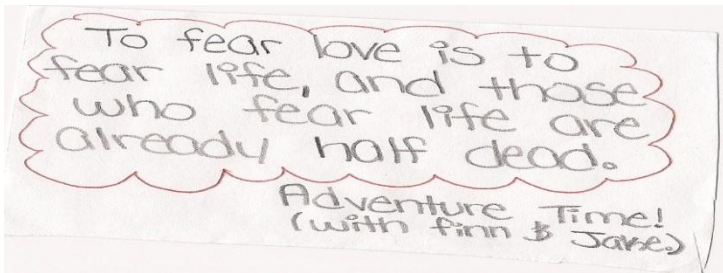 To fear love is to
fear life, and those
who fear life are
already half dead.
Adventure Time!
(with finn & Jake.)